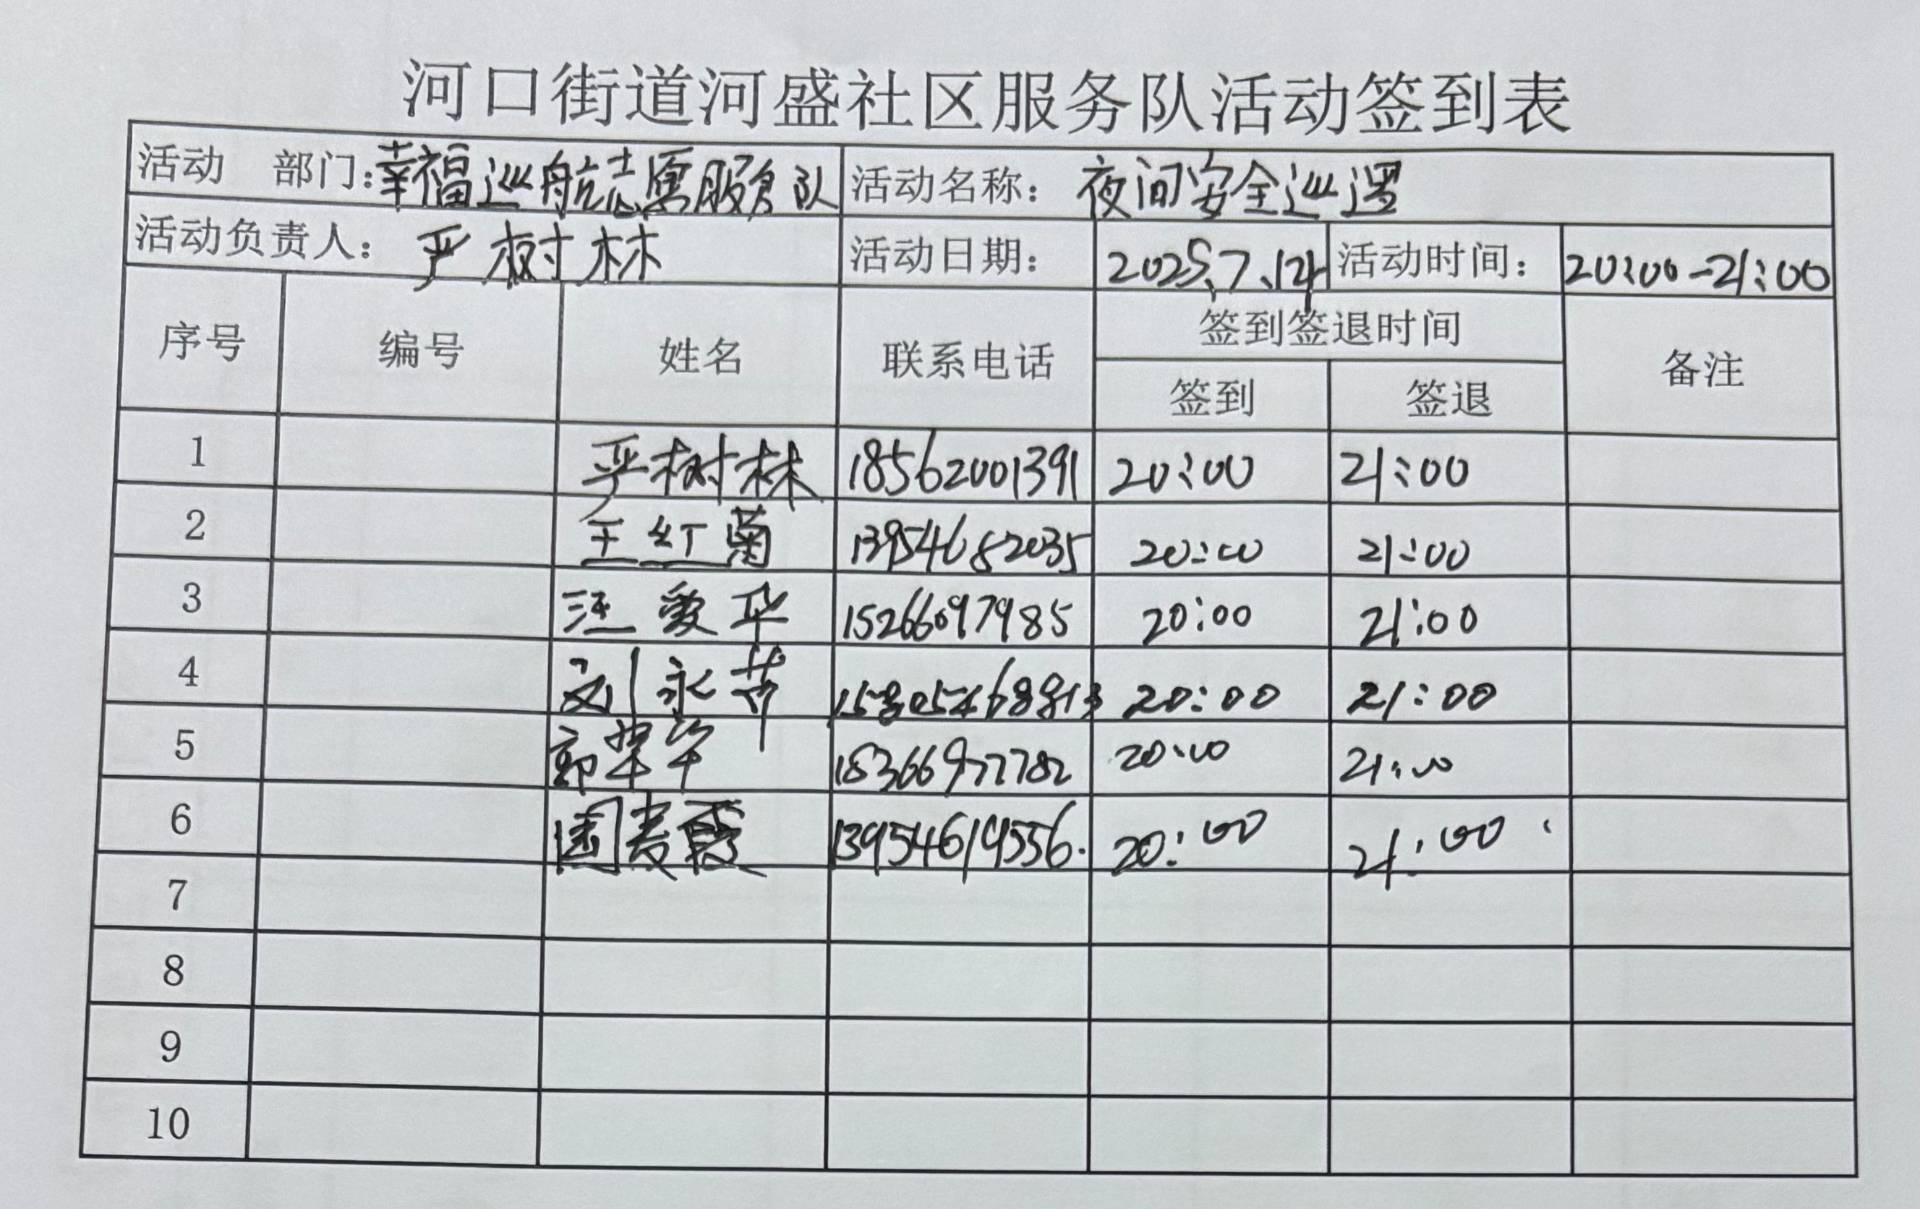 河口街道河盛社区服务队活动签到表
活动 部门：幸福巡航志愿服务队 活动名称： 夜间安全巡逻
活动负责人： 严树林 活动日期： 2025.7.14 活动时间： 20:00-21:00
序号 编号 姓名 联系电话 签到签退时间 备注
签到 签退
1 严树林 18562001391 20:00 21:00
2 王红菊 13954682035 20:00 21:00
3 汪爱华 15266097985 20:00 21:00
4 刘永芹 15805468813 20:00 21:00
5 郭翠华 18366977782 20:00 21:00
6 国麦霞 13954619556. 20:00 21:00
7
8
9
10